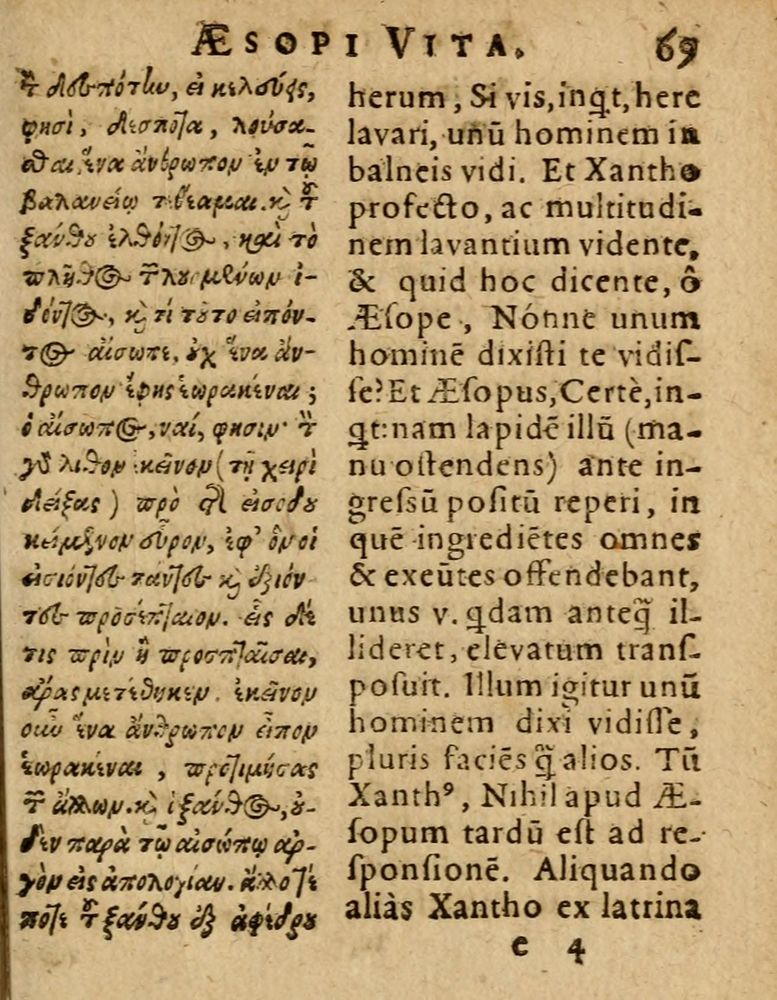 ÆSOPI VITA. 69
τὸν δεσπότην, εἰ κελεύεις,
φησὶ, δέσποτα, λούσα-
σθαι ἕνα ἄνθρωπον ἐν τῷ
βαλανείῳ τεθέαμαι. καὶ τοῦ
ξάνθου ἐλθόντος, καὶ τὸ
πλῆθος τῶν λουομένων ἰ-
δόντος, καὶ τί τοῦτο εἰπόν-
τος αἴσωπε, οὐχ ἕνα ἄν-
θρωπον ἔφης ἑωρακέναι;
ὁ αἴσωπος, ναί, φησιν· τὸν
γὰρ λίθον κεῖνον (τῇ χειρὶ
δείξας) πρὸ τῆς εἰσόδου
κείμενον εὗρον, ἐφ' ὃν οἱ
εἰσιόντες πάντες καὶ ἐξιόν
τες προσέπταιον. εἷς δέ
τις πρὶν ἢ προσπταῖσαι,
ἄρας μετέθηκεν. ἐκεῖνον
οὖν ἕνα ἄνθρωπον εἶπον
ἑωρακέναι, προτιμήσας
τῶν ἄλλων. καὶ ὁ ξάνθος, οὐ-
δὲν παρὰ τῷ αἰσώπῳ ἀρ-
γὸν εἰς ἀπολογίαν. ἄλλοτέ
ποτε τοῦ ξάνθου ἐξ ἀφέδρου
herum, Si vis, inqt, here
lavari, unū hominem in
balneis vidi. Et Xantho
profecto, ac multitudi-
nem lavantium vidente,
& quid hoc dicente, ô
Æſope, Nónne unum
hominē dixiſti te vidiſ-
ſe? Et Æſopus, Certè, in-
qt: nam lapidē illū (ma-
nu oſtendens) ante in-
greſsū poſitū reperi, in
quē ingrediētes omnes
& exeūtes offendebant,
unus v. qdam anteq̃ il-
lideret, elevatum tranſ-
poſuit. Illum igitur unū
hominem dixi vidiſſe,
pluris faciēs q̃ alios. Tū
Xanthꝰ, Nihil apud Æ-
ſopum tardū eſt ad re-
ſponſionē. Aliquando
aliàs Xantho ex latrina
e 4